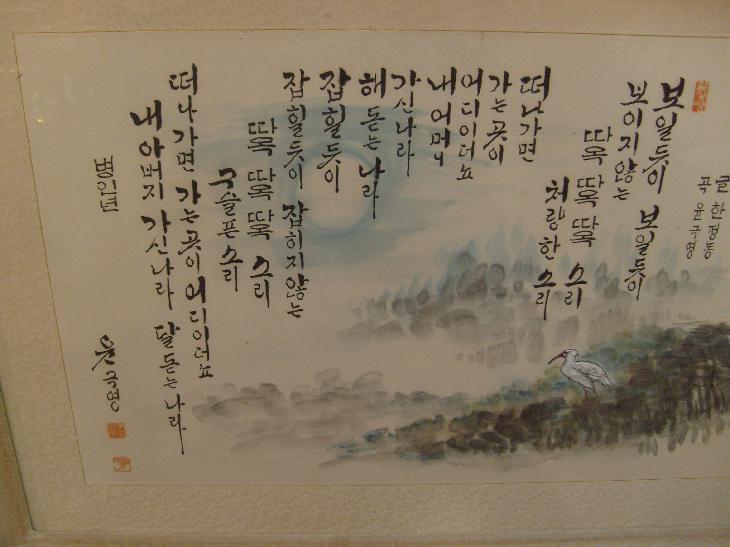 글 한정동
곡 윤극영
보일듯이 보일듯이
보이지않는
따옥 따옥 따옥 소리
처량한 소리
떠나가면
가는 곳이
어디이더뇨
내 어머니
가신 나라
해 돋는 나라
잡힐듯이
잡힐듯이 잡히지않는
따옥 따옥 따옥 소리
구슬픈 소리
떠나가면 가는곳이 어디이더뇨
내 아버지 가신나라 달 돋는 나라
병인년
윤극영